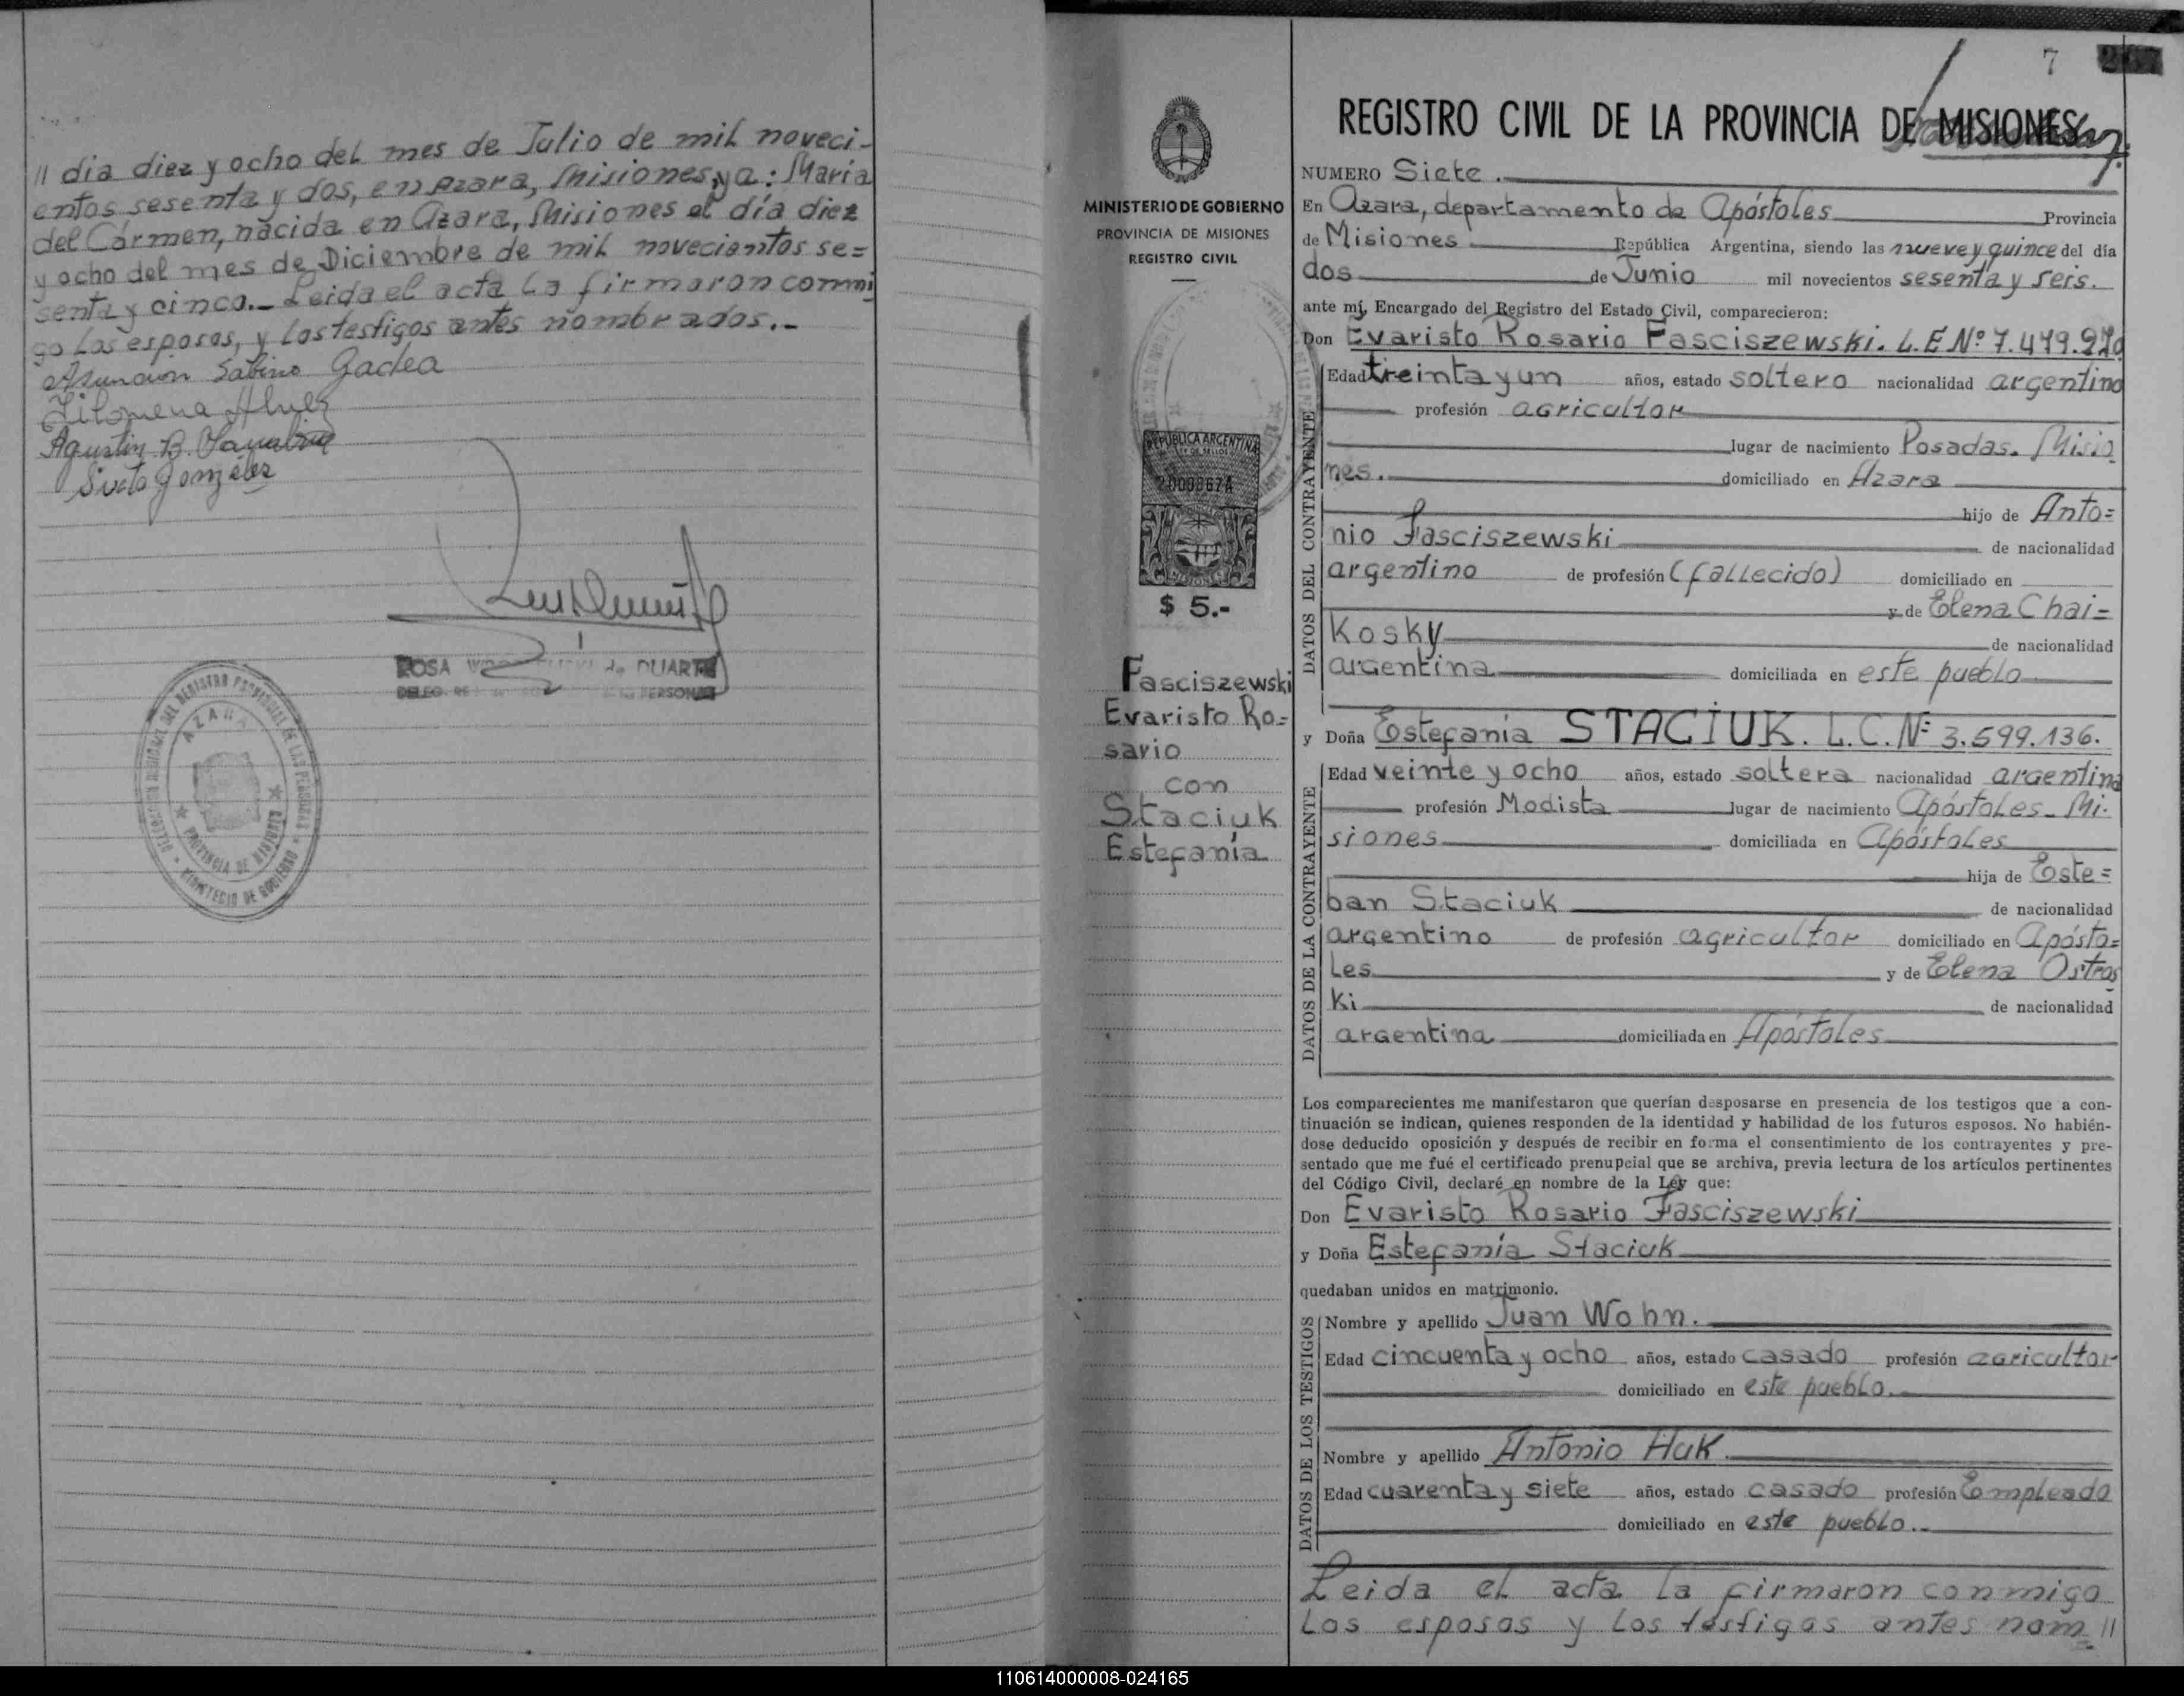 // dia diez y ocho del mes de Julio de mil noveci-
entos sesenta y dos, en Azara, Misiones, y a: María
del Cármen, nacida en Azara, Misiones el día diez
y ocho del mes de Diciembre de mil novecientos se=
senta y cinco._ Leida el acta la firmaron conmi
go los esposos, y los testigos antes nombrados._
Asunción Sabino Gadea
Filomena
Agustin B.
Sixto González
ROSA de DUARTE
DIRECCION GENERAL DEL REGISTRO PROVINCIAL DE LAS PERSONAS
AZARA
PROVINCIA DE MISIONES
MINISTERIO DE GOBIERNO
MINISTERIO DE GOBIERNO
PROVINCIA DE MISIONES
REGISTRO CIVIL
REPUBLICA ARGENTINA
LEY DE SELLOS
2000867A
MISIONES
$ 5.-
Fasciszewski
Evaristo Ro=
sario
con
Staciuk
Estefanía
7
REGISTRO CIVIL DE LA PROVINCIA DE MISIONES
NUMERO Siete.
En Azara, departamento de Apóstoles Provincia
de Misiones República Argentina, siendo las nueve y quince del día
dos de Junio mil novecientos sesenta y seis.
ante mí, Encargado del Registro del Estado Civil, comparecieron:
Don Evaristo Rosario Fasciszewski. L.E Nº 7.479.970
DATOS DEL CONTRAYENTE
Edad treinta y un años, estado soltero nacionalidad argentino
profesión agricultor
lugar de nacimiento Posadas. Misio
nes. domiciliado en Azara
hijo de Anto=
nio Fasciszewski de nacionalidad
argentino de profesión (fallecido) domiciliado en
y de Elena Chai=
Kosky de nacionalidad
argentina domiciliada en este pueblo
y Doña Estefanía STACIUK. L.C. Nº 3.599.136.
DATOS DE LA CONTRAYENTE
Edad veinte y ocho años, estado soltera nacionalidad argentina
profesión Modista lugar de nacimiento Apóstoles_ Mi.
siones domiciliada en Apóstoles
hija de Este=
ban Staciuk de nacionalidad
argentino de profesión agricultor domiciliado en Apósto=
les y de Elena Ostros
Ki de nacionalidad
argentina domiciliada en Apóstoles
Los comparecientes me manifestaron que querían desposarse en presencia de los testigos que a con-
tinuación se indican, quienes responden de la identidad y habilidad de los futuros esposos. No habién-
dose deducido oposición y después de recibir en forma el consentimiento de los contrayentes y pre-
sentado que me fué el certificado prenupcial que se archiva, previa lectura de los artículos pertinentes
del Código Civil, declaré en nombre de la Ley que:
Don Evaristo Rosario Fasciszewski
y Doña Estefanía Staciuk
quedaban unidos en matrimonio.
DATOS DE LOS TESTIGOS
Nombre y apellido Juan Wohn.
Edad cincuenta y ocho años, estado casado profesión agricultor
domiciliado en este pueblo.
Nombre y apellido Antonio Huk.
Edad cuarenta y siete años, estado casado profesión Empleado
domiciliado en este pueblo._
Leida el acta la firmaron conmigo
los esposos y los testigos antes nom //
110614000008-024165